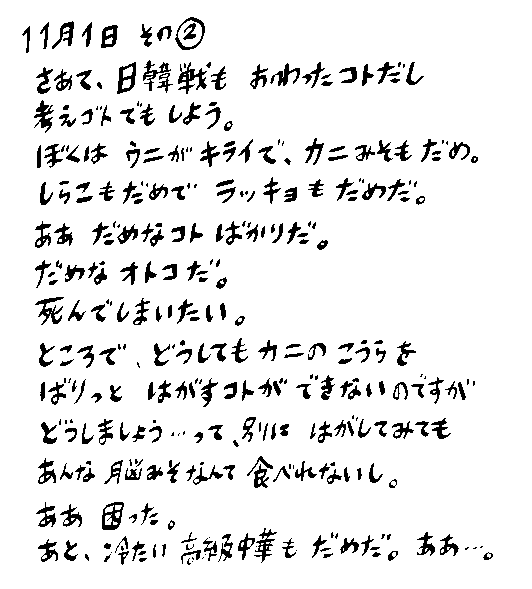 11月1日 その②
さあて、日韓戦も おわったコトだし
考えゴトでもしよう。
ぼくは ウニがキライで、カニみそもだめ。
しらこもだめで ラッキョもだめだ。
ああ だめなコトばかりだ。
だめなオトコだ。
死んでしまいたい。
ところで、どうしてもカニのこうらを
ばりっと はがすコトができないのですが
どうしましょう…って、別に はがしてみても
あんな脳みそなんて食べれないし。
ああ 困った。
あと、冷たい高級中華もだめだ。ああ…。